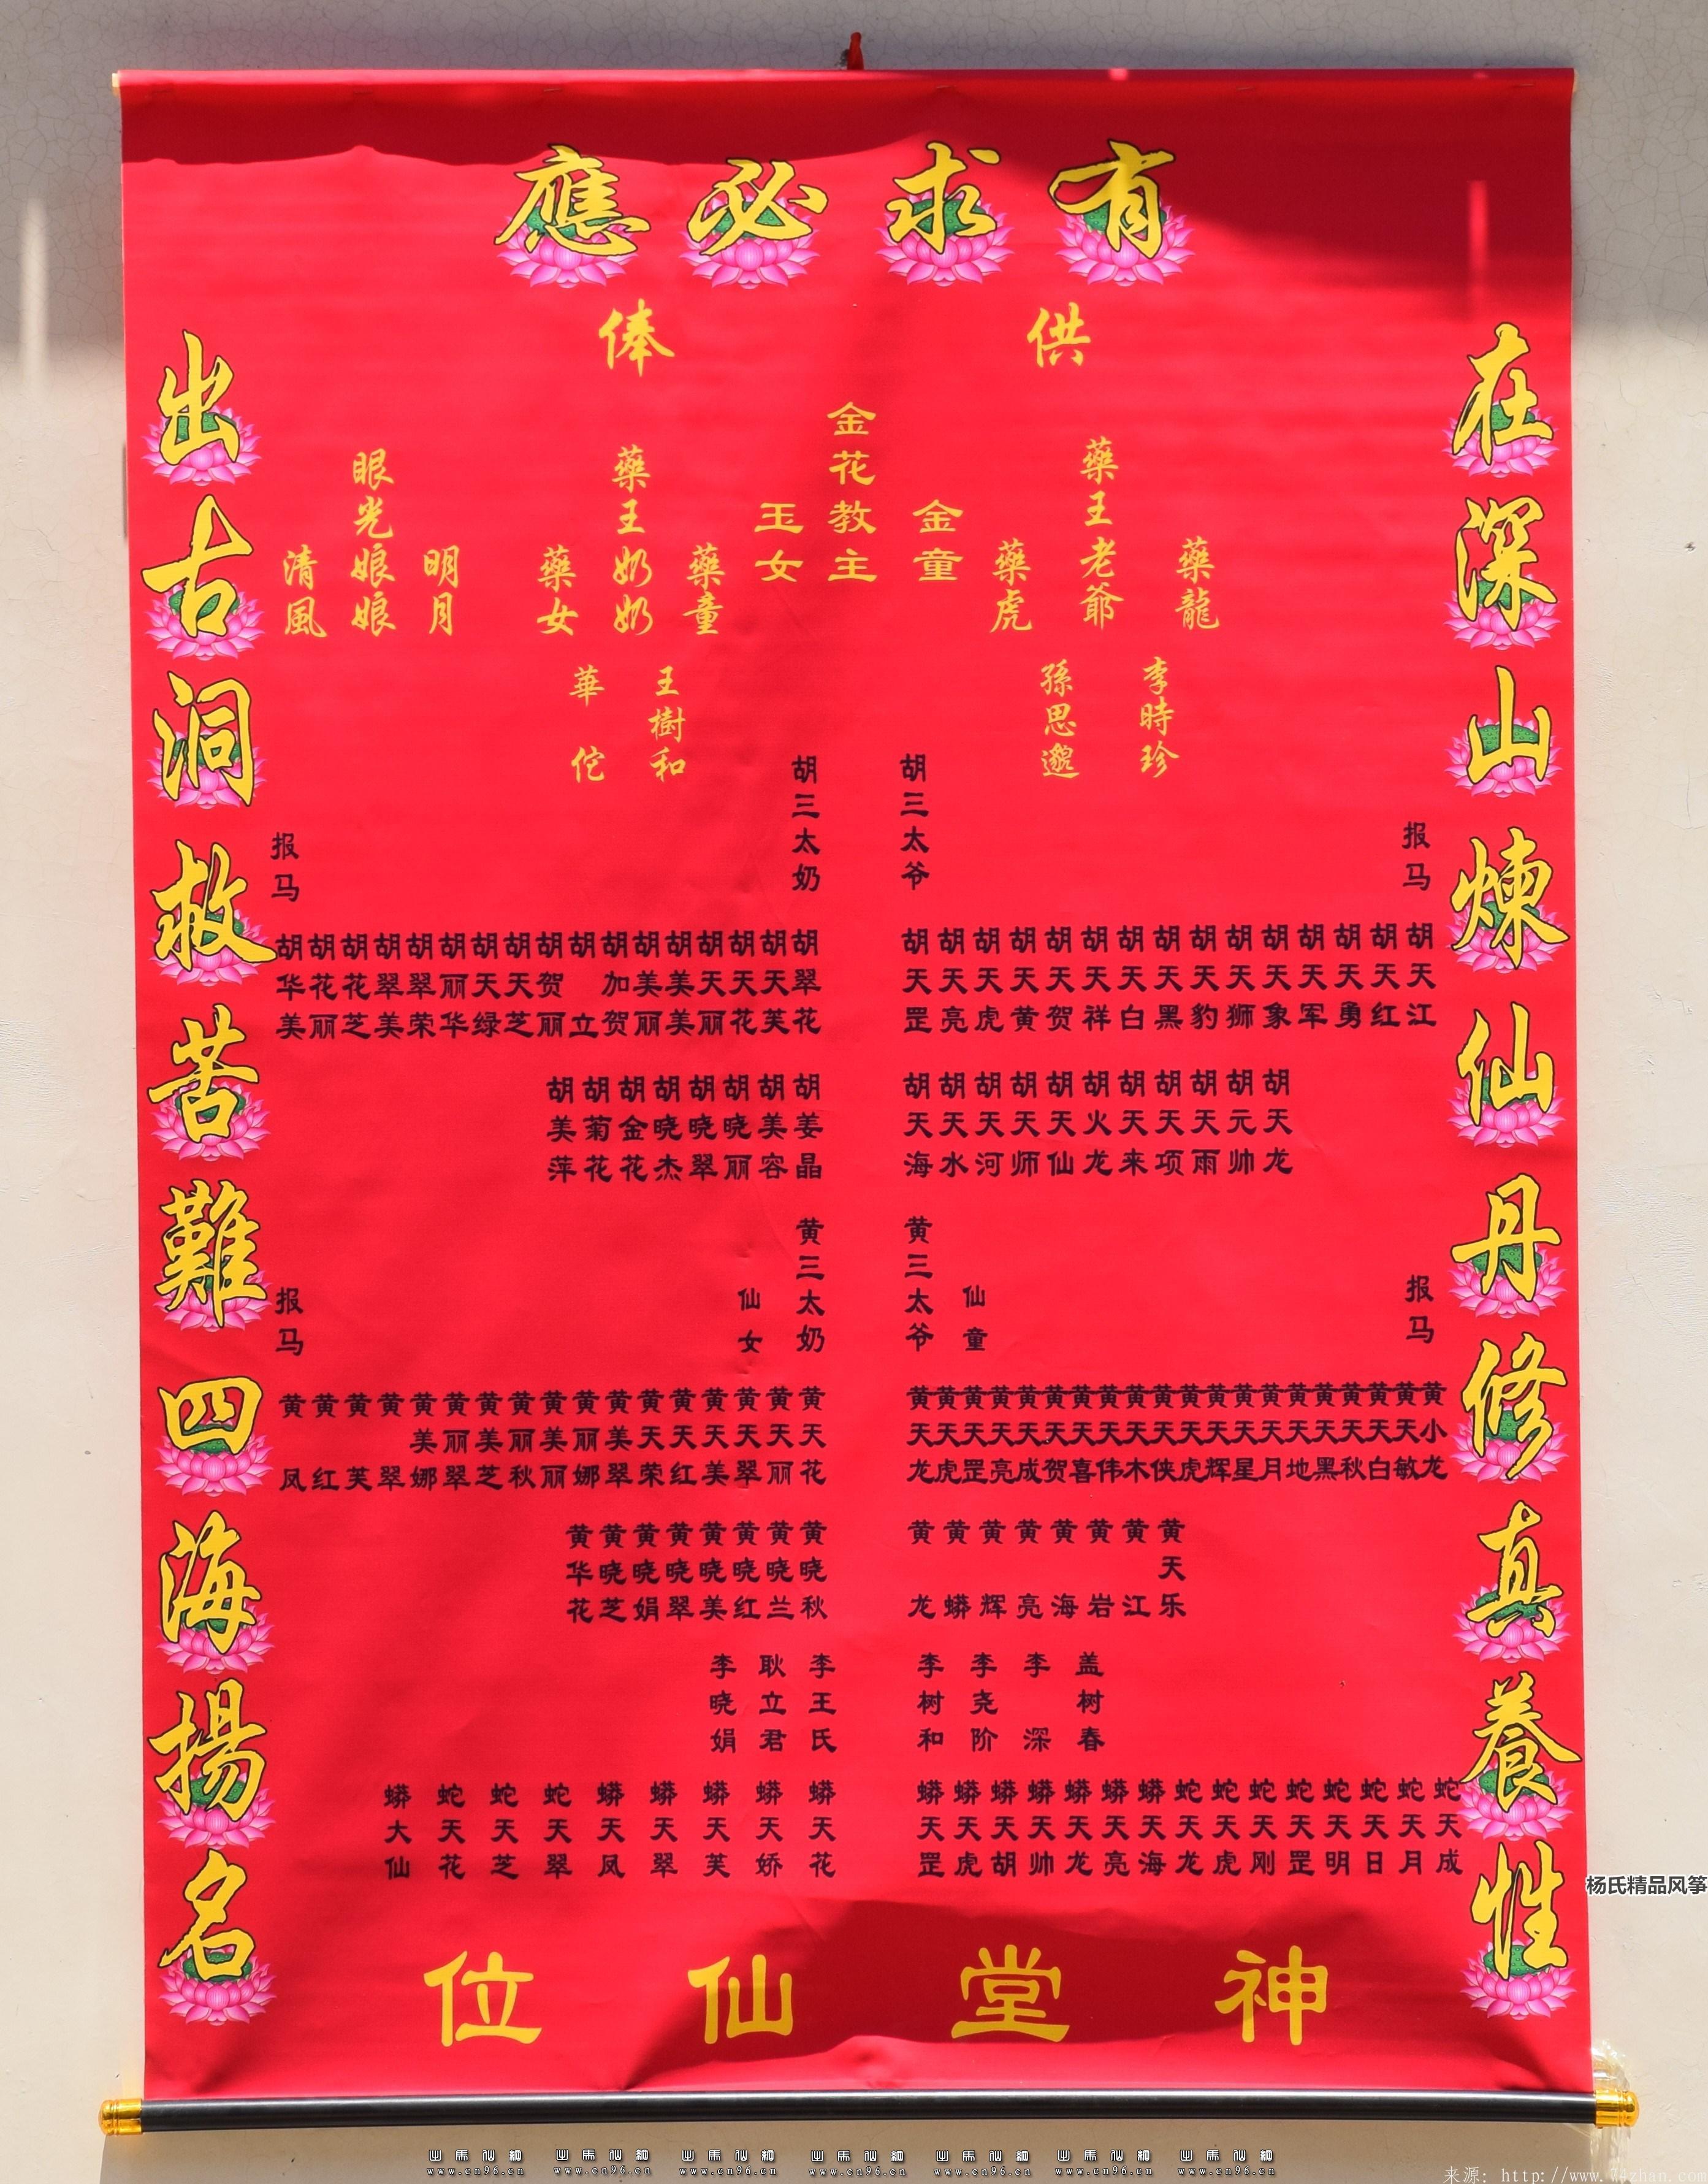 有求必應
供俸
在深山煉仙丹修真養性
出古洞救苦難四海揚名
金花教主
金童
玉女
藥龍
藥王老爺
藥虎
藥童
藥王奶奶
藥女
明月
眼光娘娘
清風
李時珍
孫思邈
王樹和
華佗
胡三太爷
胡三太奶
报马
报马
胡天江
胡天红
胡天勇
胡天军
胡天象
胡天狮
胡天豹
胡天黑
胡天白
胡天祥
胡天贺
胡天黄
胡天虎
胡天亮
胡天罡
胡翠花
胡天芙
胡天花
胡天丽
胡美美
胡美丽
胡加贺
胡立
胡贺丽
胡天芝
胡天绿
胡丽华
胡翠荣
胡翠美
胡花芝
胡花丽
胡华美
胡天龙
胡元帅
胡天雨
胡天项
胡天来
胡火龙
胡天仙
胡天师
胡天河
胡天水
胡天海
胡姜晶
胡美容
胡晓丽
胡晓翠
胡晓杰
胡金花
胡菊花
胡美萍
黄三太爷
黄三太奶
仙童
仙女
报马
报马
黄小龙
黄天敏
黄天白
黄天秋
黄天黑
黄天地
黄天月
黄天星
黄天辉
黄天虎
黄天侠
黄天木
黄天伟
黄天喜
黄天贺
黄天成
黄天亮
黄天罡
黄天虎
黄天龙
黄天花
黄天丽
黄天翠
黄天美
黄天红
黄天荣
黄美翠
黄丽娜
黄美丽
黄丽秋
黄美芝
黄丽翠
黄美娜
黄翠
黄芙
黄红
黄凤
黄天乐
黄江
黄岩
黄海
黄亮
黄辉
黄蟒
黄龙
黄晓秋
黄晓兰
黄晓红
黄晓美
黄晓翠
黄晓娟
黄晓芝
黄华花
盖树春
李深
李尧阶
李树和
李王氏
耿立君
李晓娟
蛇天成
蛇天月
蛇天日
蛇天明
蛇天罡
蛇天刚
蛇天虎
蛇天龙
蟒天海
蟒天亮
蟒天龙
蟒天帅
蟒天胡
蟒天虎
蟒天罡
蟒天花
蟒天娇
蟒天芙
蟒天翠
蟒天凤
蛇天翠
蛇天芝
蛇天花
蟒大仙
神堂仙位
杨氏精品风筝
出馬仙網 出馬仙網 出馬仙網 出馬仙網 出馬仙網 出馬仙網 出馬仙網
www.cn96.cn www.cn96.cn www.cn96.cn www.cn96.cn www.cn96.cn www.cn96.cn www.cn96.cn